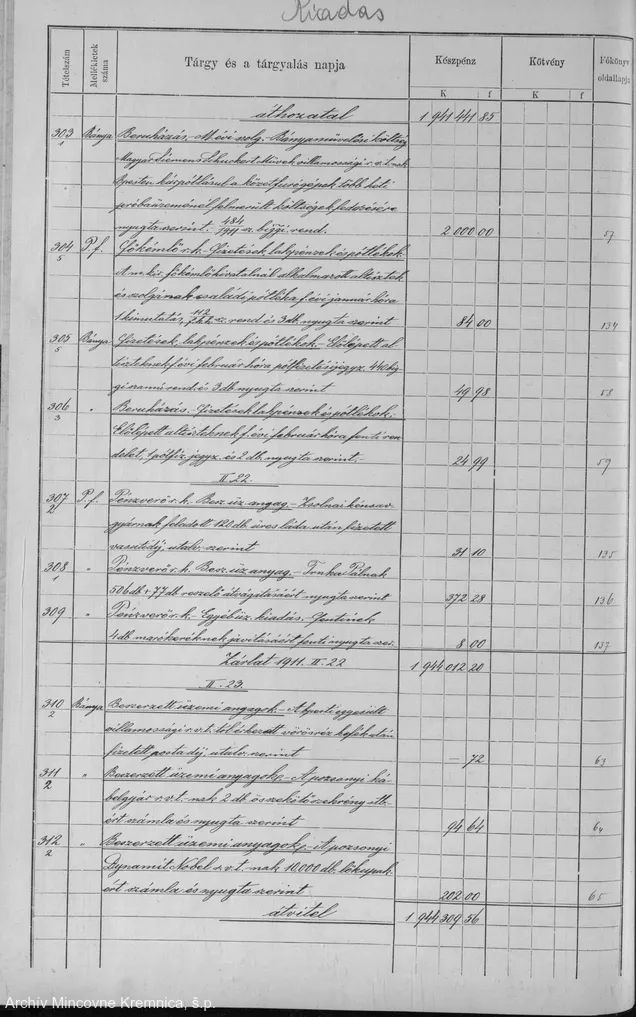 Kiadás
Tételszám Mellékletek száma Tárgy és a tárgyalás napja Készpénz Kötvény Főkönyv oldallapja
K f K f
áthozatal 1 941 441 85
303/1 Bánya Beruházás. Bányaművelési költség
Magyar Siemens Schuckert Művek villamossági r.v.t.-nak
Bpesten kárpótlásul a kőzetfurógépek több heti
próbaüzeménél felmerült költségek fedezésére
nyugta szerint. 484/1911 rend. 2 000 00 57
304/5 P.f. Főkémlő r.k. Fizetések, lakpénzek és pótlékok.
A m. kir. főkémlőhivatalnál alkalmazott altisztek
és szolgának családi pótléka f. évi január hóra
1 kimutatás, rend és 3 db. nyugta szerint 84 00 134
305/5 Bánya Fizetések, lakpénzek és pótlékok. Előlépett al-
tiszteknek f. évi február hóra pótfizetési jegyz. 440
szamú rend. és 3 db. nyugta szerint 49 98 58
306/3 " Beruházás. Fizetések lakpénzek és pótlékok.
Előlépett altiszteknek f. évi február hóra fenti ren-
delet, 1 pótfiz. jegyz. és 2 db. nyugta szerint. 24 99 59
II. 22.
307/2 P.f. Pénzverő r.k. Besz. üz. anyag. Zsolnai kénsav-
gyárnak feladott 120 db. üres láda után fizetett
vasuti díj, utalv. szerint 31 10 135
308/1 " Pénzverő r.k. Besz. üz. anyag. Trnka Pálnak
506 db + 77 db reszelő átvágásáért nyugta szerint 372 28 136
309 " Pénzverő r.k. Egyéb üz. kiadás. Fentinek
4 db. javításáért fenti nyugta szer. 8 00 137
Zárlat 1911. II. 22 1 944 012 20
II. 23.
310/2 Bánya Beszerzett üzemi anyagok. A bpesti egyesült
villamossági r.v.t. től érkezett vörösréz kefék után
fizetett posta díj, utalv. szerint — 72 63
311/2 " Beszerzett üzemi anyagok. A pozsonyi ká-
belgyár r.v.t.-nak 2 db. összekötő szekrény
ért számla és nyugta szerint 94 64 64
312/2 " Beszerzett üzemi anyagok. A pozsonyi
Dynamit Nobel r.v.t.-nak 10.000 db. lőkupak-
ért számla és nyugta szerint 202 00 65
átvitel 1 944 309 56
Archív Mincovne Kremnica, š.p.